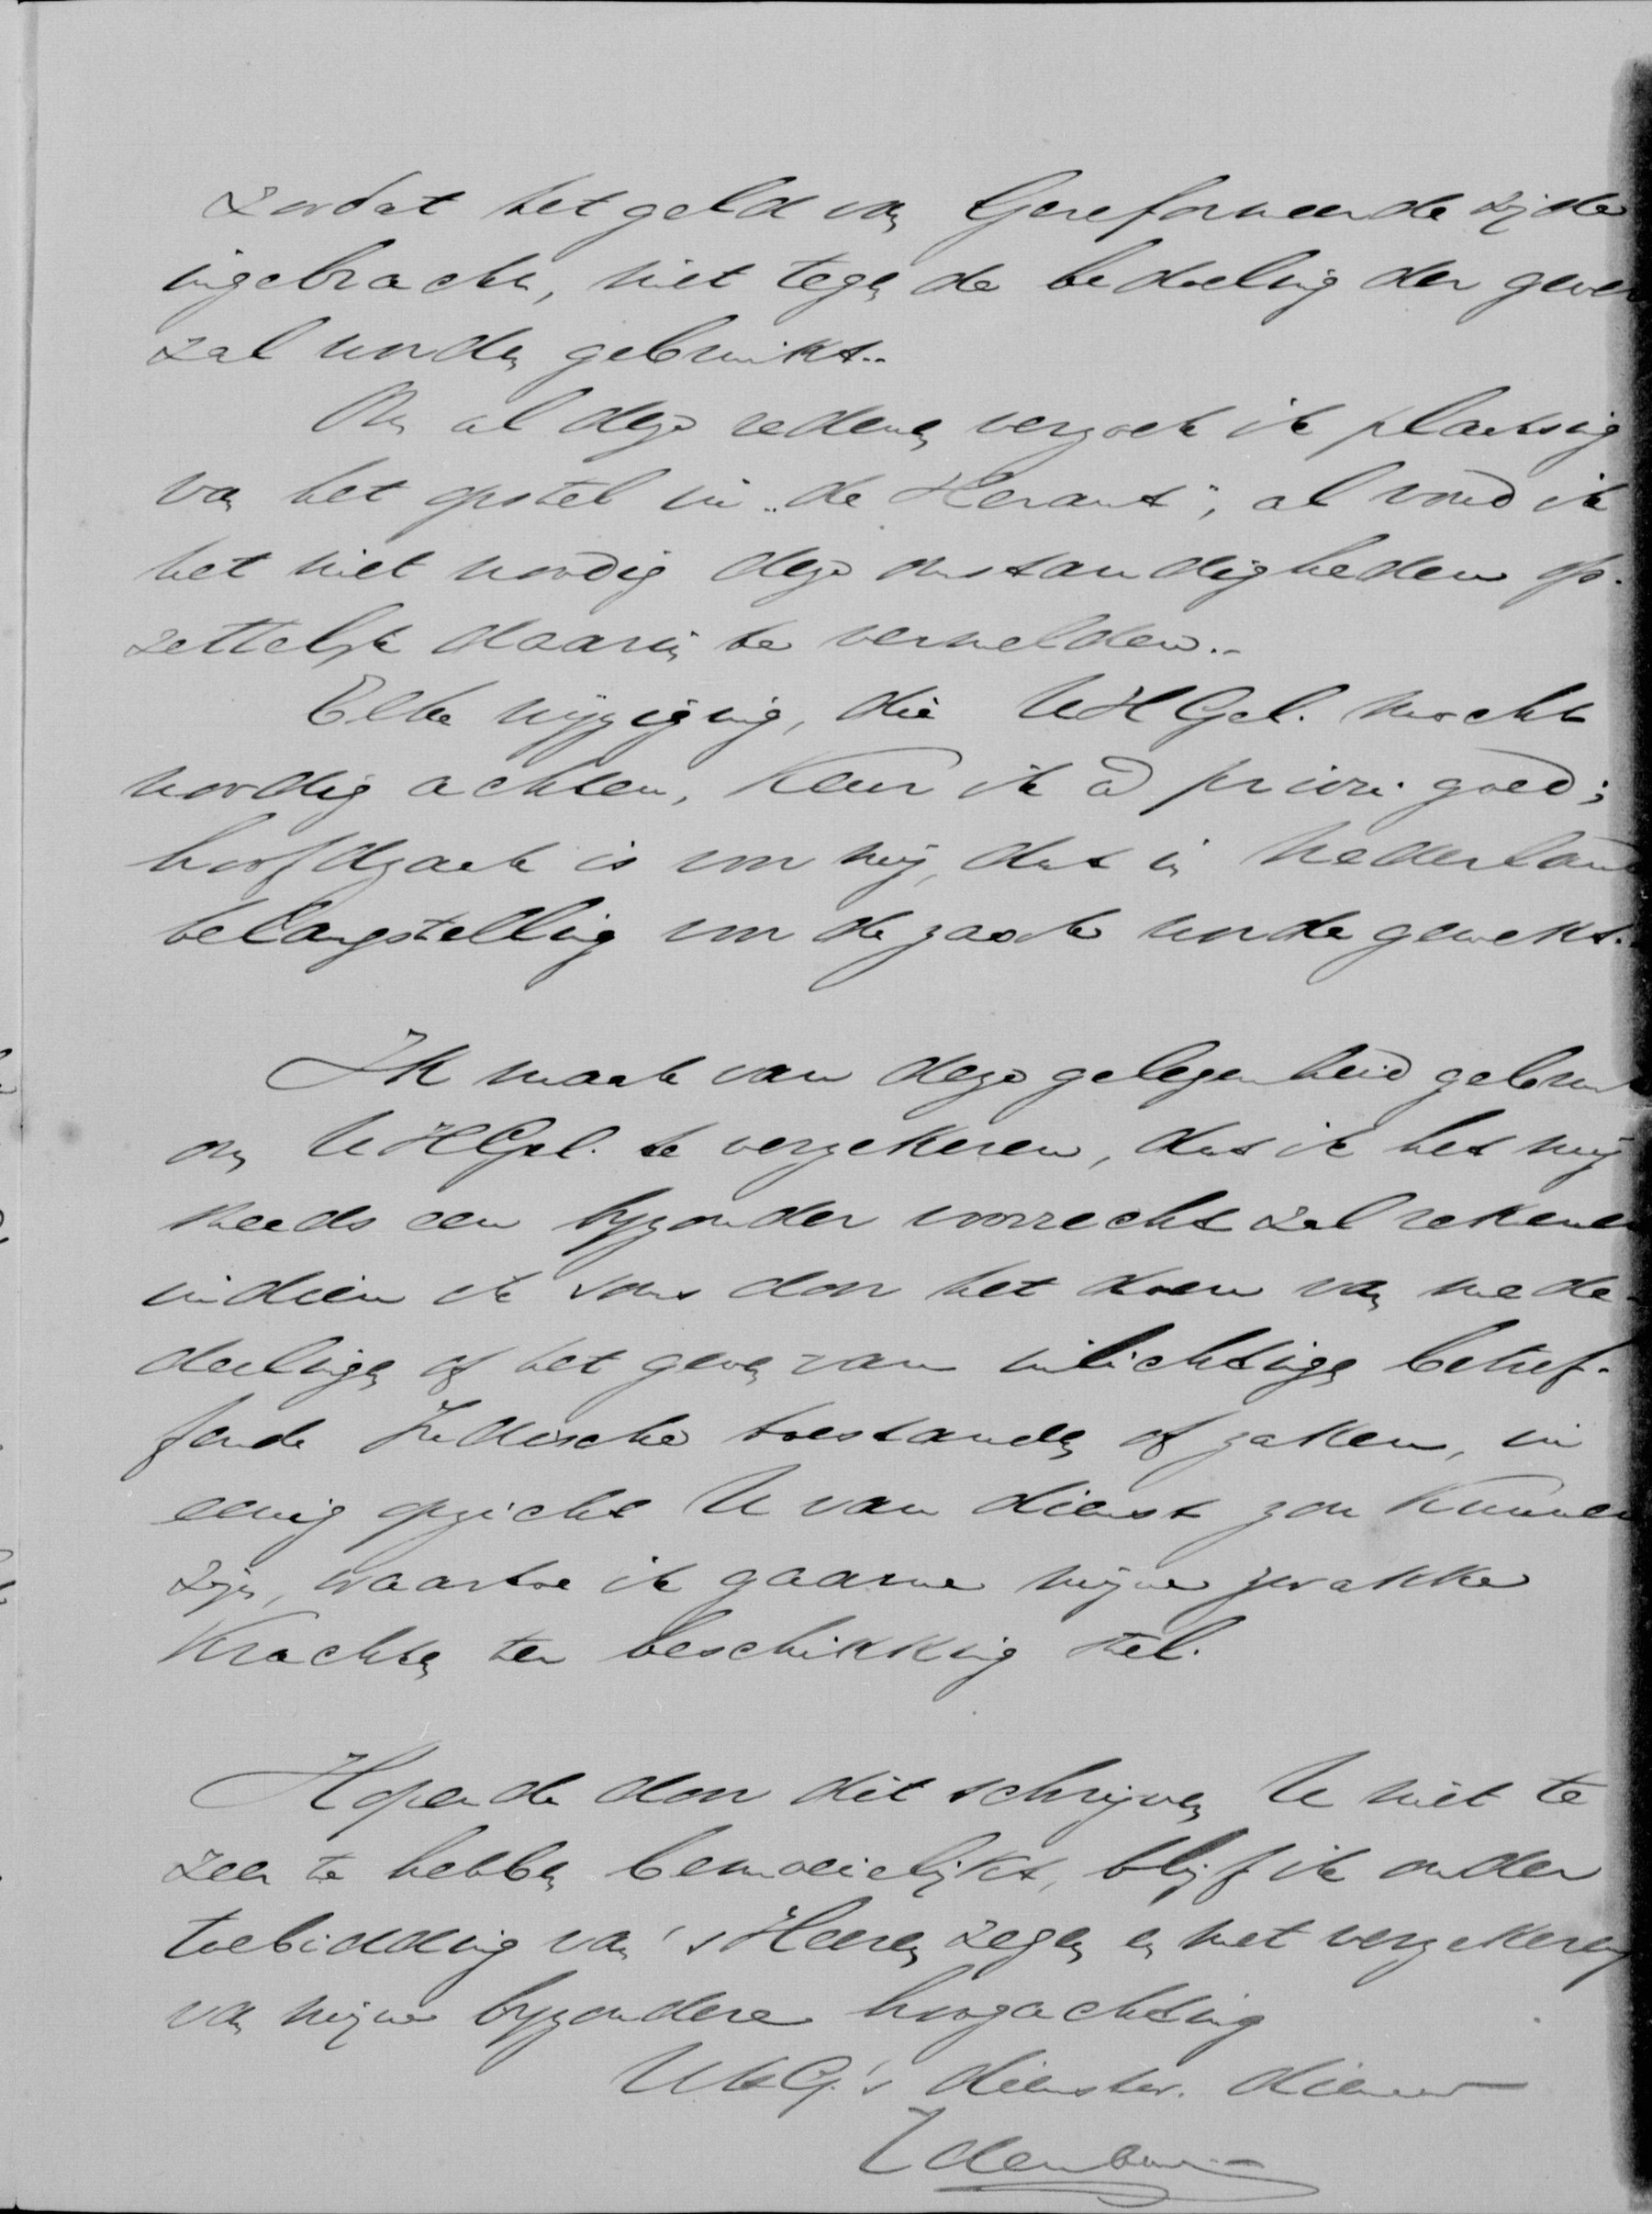 zoodat het geld van Gereformeerde zijde
ingebracht, niet tegen de bedoeling der gever
zal worden gebruikt.
Om al deze redenen verzoek ik plaatsing
van het opstel in "de Heraut", al vond ik
het niet noodig deze omstandigheden op-
zettelijk daarin te vermelden.
Elke wijziging, die UHGel. mocht
noodig achten, keur ik à priori goed;
hoofdzaak is voor mij, dat in Nederland
belangstelling voor de zaak worde gewekt.
Ik maak van deze gelegenheid gebruik
om UHGel. te verzekeren, dat ik het mij
steeds een byzonder voorrecht zal rekenen
indien ik soms door het doen van mede-
deelingen of het geven van inlichtingen betref-
fende Indische toestanden of zaken, in
eenig opzicht U van dienst zou kunnen
zijn, waartoe ik gaarne mijne zwakke
krachten ter beschikking stel.
Hopende door dit schrijven U niet te
zeer te hebben bemoeielijkt, blijf ik onder
toebidding van 's Heeren zegen en met verzekering
van mijne byzondere hoogachting
UHG's dienstw. dienaar
Idenburg